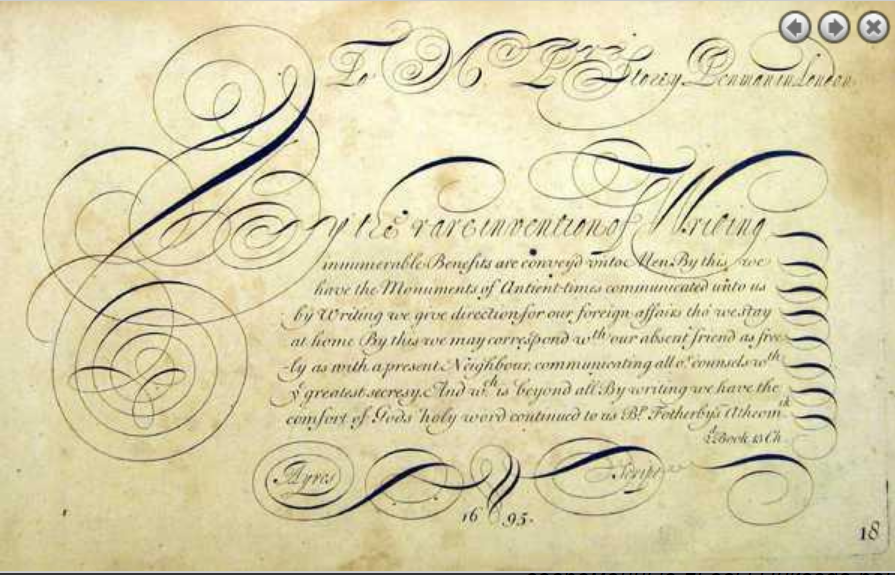 To Mr Stacey Penman in London
By the rare invention of Writing
innumerable Benefits are convey'd unto Men. By this we
have the Monuments of Antient times communicated unto us
by Writing we give direction for our foreign affairs tho' we stay
at home By this we may correspond wth our absent friend as free-
-ly as with a present Neighbour, communicating all or counsels wth
ye greatest secresy. And wch is beyond all By writing we have the
comfort of Gods holy word continued to us Bp Fotherby's Atheom
2d Book 13 Ch.
Ayres Script
1695.
18